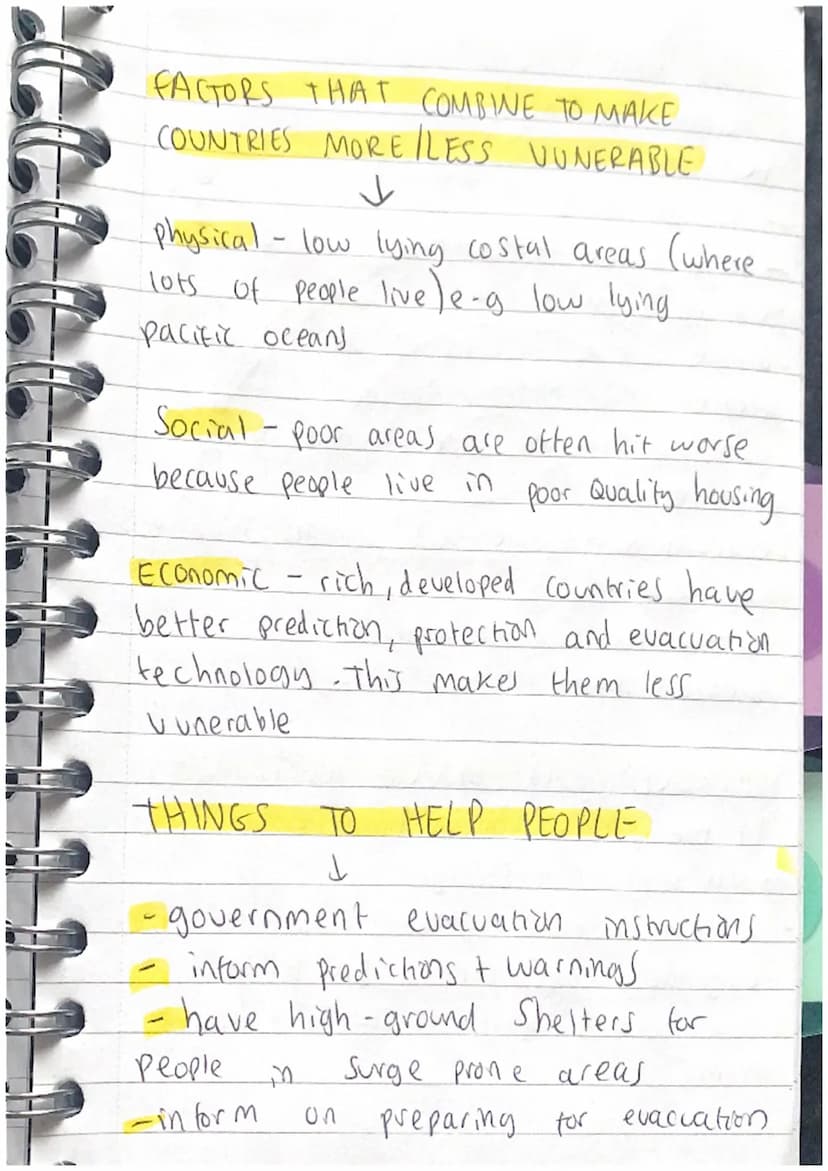 FACTORS THAT COMBINE TO MAKE
COUNTRIES MORE/LESS VUNERABLE
↓
physical - low lying costal areas (where
lots of people live) e-g low lying
pacific oceans
Social - poor areas are often hit worse
because people live in poor Quality housing
Economic - rich, developed countries have
better prediction, protection and evacuation
technology. This makes them less
vunerable
THINGS TO HELP PEOPLE
↓
- government evacuation instructions
- inform predictions + warnings
- have high-ground Shelters for
people in surge prone areas
- inform on preparing for evacuation